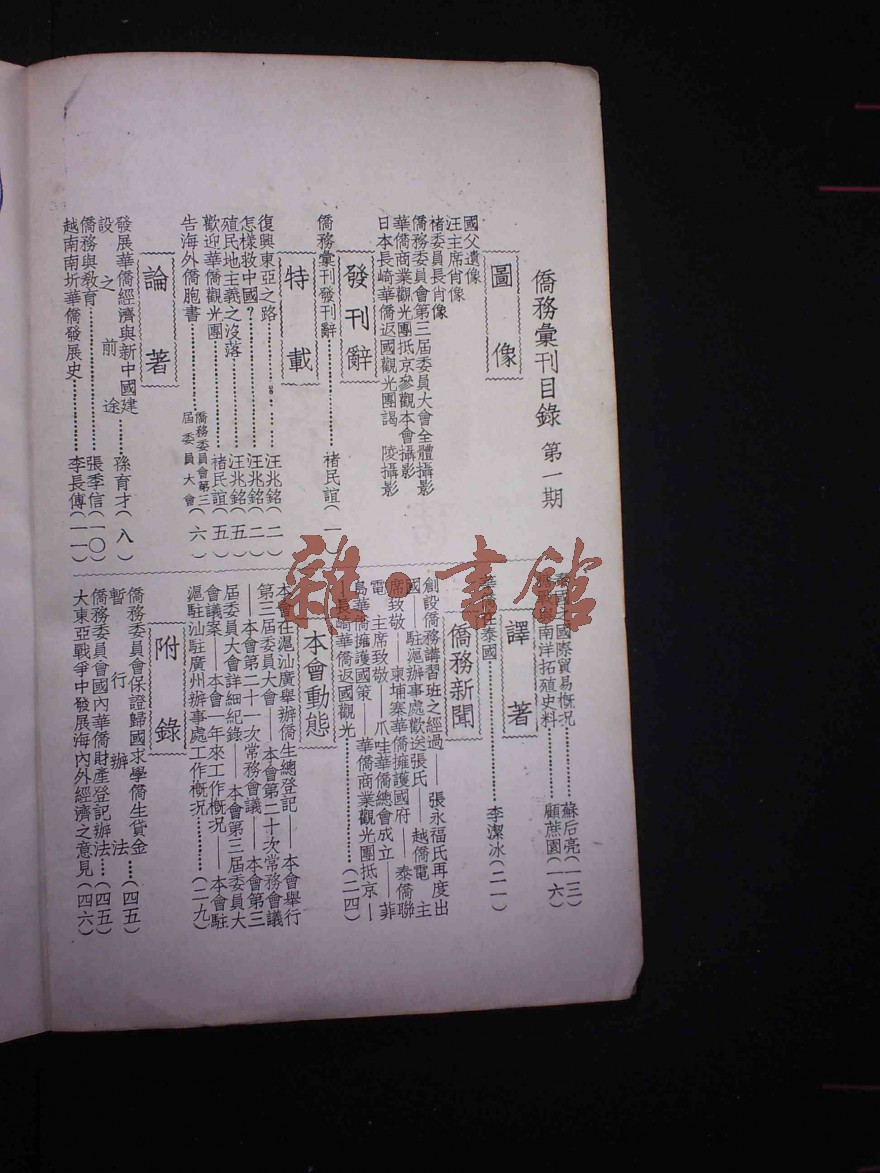 僑務彙刊目錄 第一期
圖像
國父遺像
汪主席肖像
褚委員長肖像
僑務委員會第三屆委員大會全體攝影
華僑商業觀光團抵京參觀本會攝影
日本長崎華僑返國觀光團謁 陵攝影
發刊辭
僑務彙刊發刊辭………褚民誼(一)
特載
復興東亞之路………汪兆銘(二)
怎樣救中國?………汪兆銘(二)
殖民地主義之沒落………汪兆銘(五)
歡迎華僑觀光團………褚民誼(五)
告海外僑胞書………僑務委員會第三屆委員大會(六)
論著
發展華僑經濟與新中國建
設之前途………孫育才(八)
僑務與教育………張季信(一〇)
越南南圻華僑發展史………李長傅(一一)
譯著
國際貿易概況………蘇后亮(一三)
南洋拓殖史料………顧蔗園(一六)
泰國………李潔冰(二一)
僑務新聞
創設僑務講習班之經過——張永福氏再度出
國——駐滬辦事處歡送張氏——越僑電 主
席致敬——柬埔寨華僑擁護國府——泰僑聯
電 主席致敬——爪哇華僑總會成立——菲
島華僑擁護國策——華僑商業觀光團抵京—
—長崎華僑返國觀光………(二四)
本會動態
本會在滬汕廣舉辦僑生總登記——本會舉行
第三屆委員大會——本會第二十次常務會議
——本會第二十一次常務會議——本會第三
屆委員大會詳細紀錄——本會第三屆委員大
會議案——本會一年來工作概況——本會駐
滬駐汕駐廣州辦事處工作概況………(二九)
附錄
僑務委員會保證歸國求學僑生貸金
暫行辦法………(四五)
僑務委員會國內華僑財產登記辦法…(四五)
大東亞戰爭中發展海內外經濟之意見(四六)
雜·書館